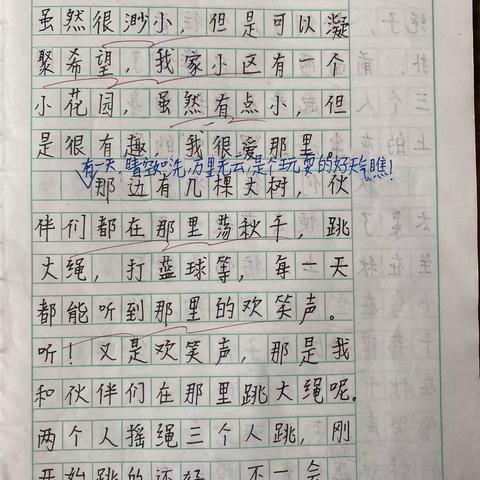 虽然很渺小，但是可以凝
聚希望，我家小区有一个
小花园，虽然有点小，但
是很有趣，我很爱那里。
有一天，晴空如洗，万里无云，是个玩耍的好天气瞧！
那边有几棵大树，伙
伴们都在那里荡秋千，跳
大绳，打蓝球等，每一天
都能听到那里的欢笑声。
听！又是欢笑声，那是我
和伙伴们在那里跳大绳呢。
两个人摇绳三个人跳，刚
开始跳的还好，不一会